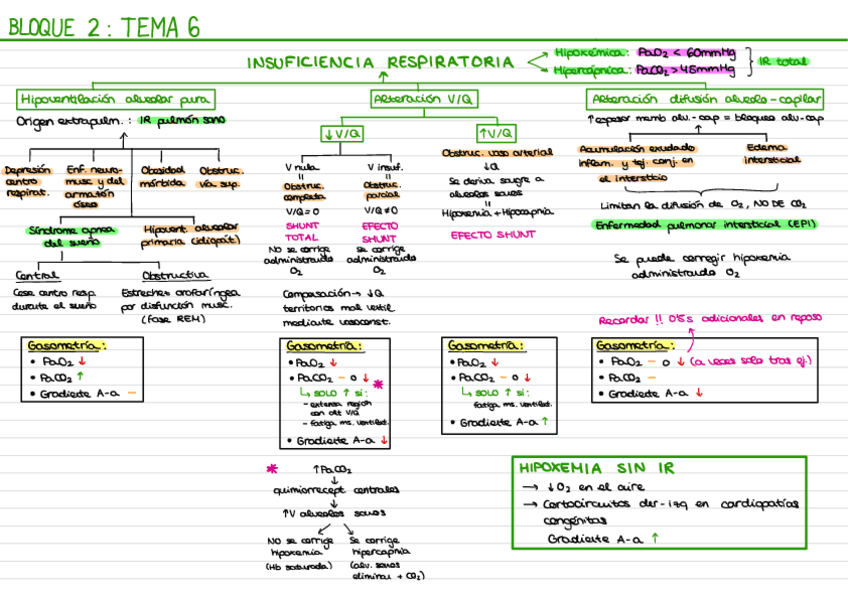 BLOQUE 2: TEMA 6
INSUFICIENCIA RESPIRATORIA
Hipoxémica: PaO₂ < 60mmHg
Hipercápnica: PaCO₂ > 45mmHg
IR total
Hipoventilación alveolar pura
Origen extrapulm.: IR pulmón sano
Depresión
centro
respirat.
Enf. neuro-
musc y del
armazón
óseo
Obesidad
mórbida
Obstruc.
vía sup.
Síndrome apnea
del sueño
Hipovent. alveolar
primaria (idiopát)
Central
Cese centro resp.
durante el sueño
Obstructiva
Estrechez orofaríngea
por disfunción musc.
(Fase REM)
Gasometría:
• PaO₂ ↓
• PaCO₂ ↑
• Gradiente A-a –
Alteración V/Q
↓V/Q
V nula
"
Obstruc.
completa
V/Q=0
SHUNT
TOTAL
No se corrige
administrando
O₂
V insuf.
"
Obstruc.
parcial
V/Q≠0
EFECTO
SHUNT
Se corrige
administrando
O₂
Compensación → ↓Q
territorios mal ventil
mediante vasoconst.
Gasometría:
• PaO₂ ↓
• PaCO₂ – o ↓ *
↳ SOLO ↑ si:
- extensa región
con alt V/Q
- fatiga ms. ventilat.
• Gradiente A-a ↓
* ↑PaCO₂
↓
quimiorrecept centrales
↓
↑V alveolos sanos
No se corrige
hipoxemia
(Hb saturada)
Se corrige
hipercapnia
(alv. sanos
eliminan + CO₂)
↑V/Q
Obstruc. vaso arterial
↓Q
Se deriva sangre a
alveolos sanos
"
Hipoxemia + Hipocapnia
EFECTO SHUNT
Gasometría:
• PaO₂ ↓
• PaCO₂ – o ↓
↳ SOLO ↑ si:
fatiga ms. ventilat.
• Gradiente A-a ↑
Alteración difusión alveolo-capilar
↑espesor memb alv.-cap = bloqueo alv-cap
Acumulación exudado
inflam. y tej. conj. en
el intersticio
Edema
intersticial
Limitan la difusión de O₂, NO DE CO₂
Enfermedad pulmonar intersticial (EPI)
Se puede corregir hipoxemia
administrando O₂
Recordar !! 0'5s adicionales en reposo
Gasometría:
• PaO₂ – o ↓ (a veces solo tras ej.)
• PaCO₂ –
• Gradiente A-a ↓
HIPOXEMIA SIN IR
→ ↓O₂ en el aire
→ Cortocircuitos der-izq en cardiopatías
congénitas
Gradiente A-a ↑